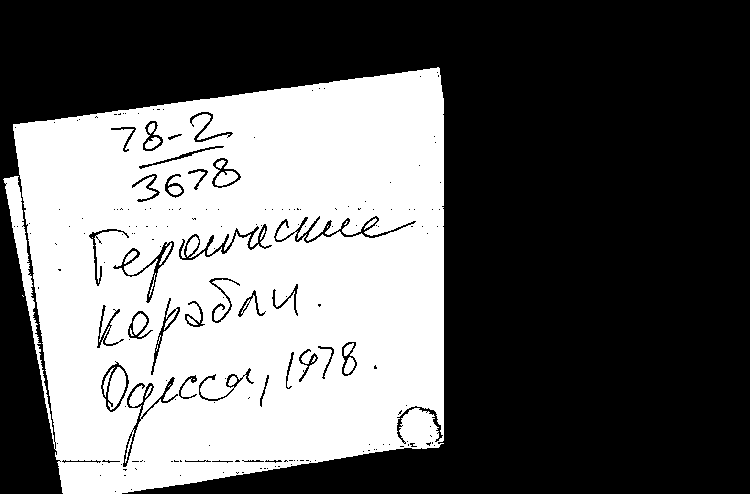 78-2
3678
Героические
корабли.
Одесса, 1978.